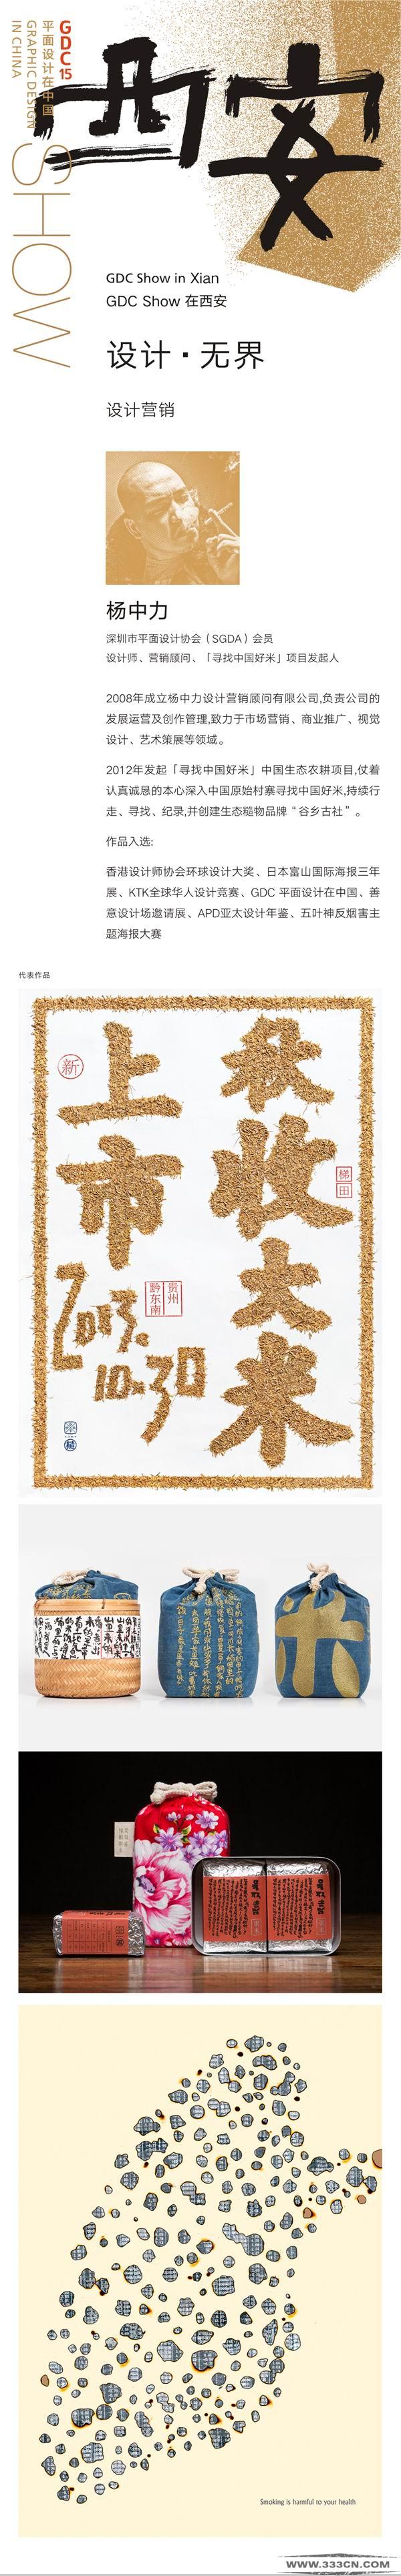 GDC
15
平面设计在中国
GRAPHIC DESIGN
IN CHINA
SHOW
西安
GDC Show in Xian
GDC Show 在西安
设计·无界
设计营销
杨中力
深圳市平面设计协会（SGDA）会员
设计师、营销顾问、「寻找中国好米」项目发起人
2008年成立杨中力设计营销顾问有限公司,负责公司的
发展运营及创作管理,致力于市场营销、商业推广、视觉
设计、艺术策展等领域。
2012年发起「寻找中国好米」中国生态农耕项目,仗着
认真诚恳的本心深入中国原始村寨寻找中国好米,持续行
走、寻找、纪录,并创建生态糙物品牌“谷乡古社”。
作品入选:
香港设计师协会环球设计大奖、日本富山国际海报三年
展、KTK全球华人设计竞赛、GDC 平面设计在中国、善
意设计场邀请展、APD亚太设计年鉴、五叶神反烟害主
题海报大赛
代表作品
新
上市
2013.
10.30
贵州
黔东南
梯田
收
大
米
Smoking is harmful to your health
WWW.333CN.COM